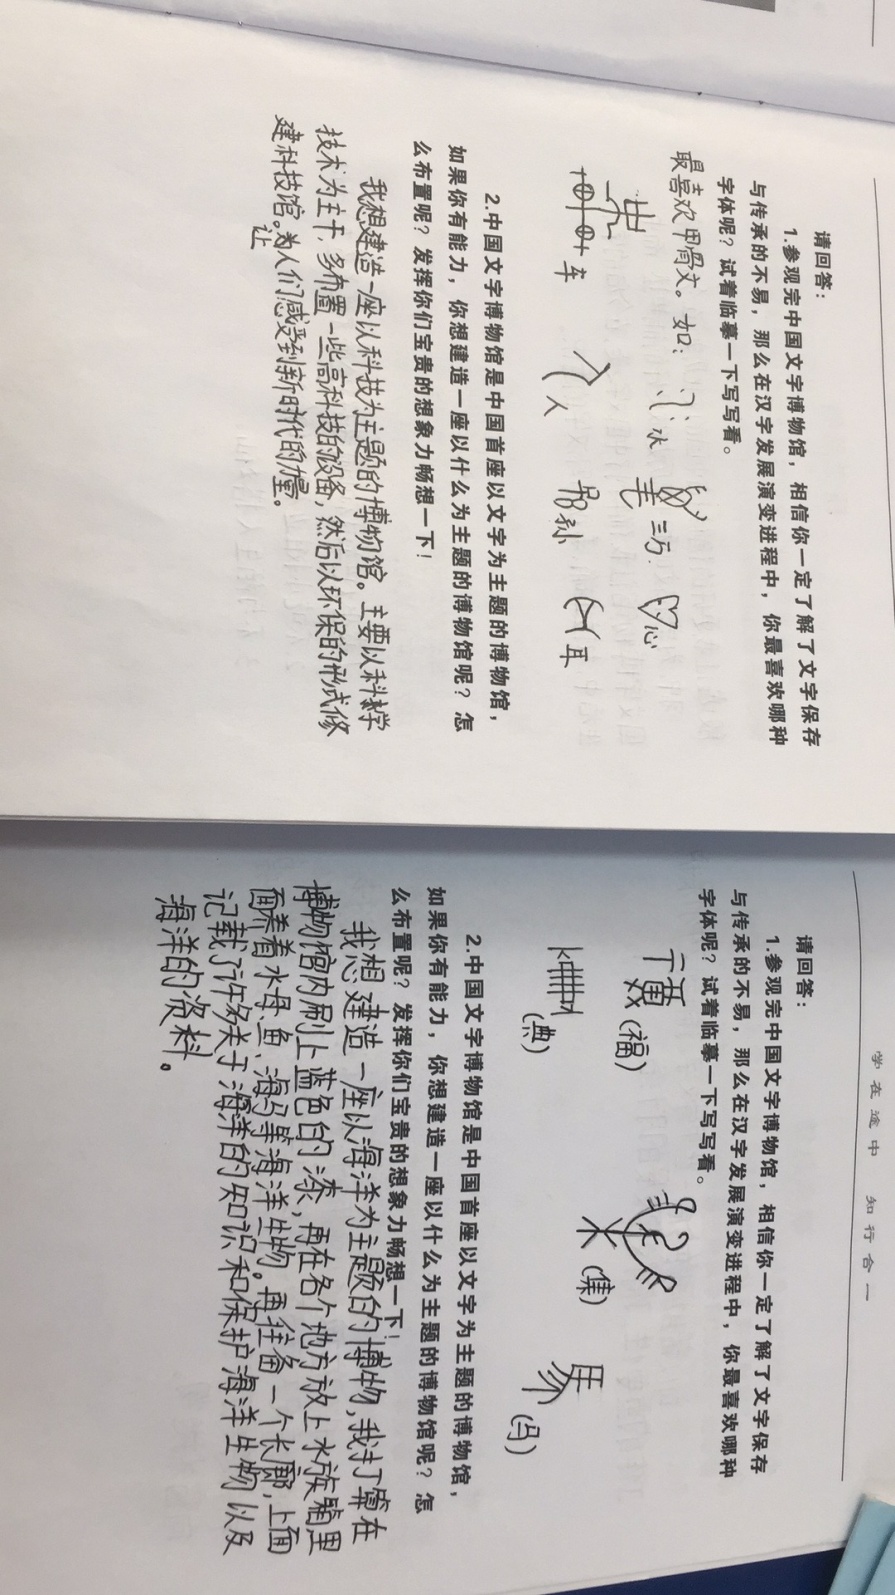 请回答：
1.参观完中国文字博物馆，相信你一定了解了文字保存
与传承的不易，那么在汉字发展演变进程中，你最喜欢哪种
字体呢？试着临摹一下写写看。
最喜欢甲骨文。如：水 心
车 人 耳
2.中国文字博物馆是中国首座以文字为主题的博物馆，
如果你有能力，你想建造一座以什么为主题的博物馆呢？怎
么布置呢？发挥你们宝贵的想象力畅想一下！
我想建造一座以科技为主题的博物馆。主要以科学
技术为主干，多布置一些高科技的设备，然后以环保的形式修
建科技馆。让人们感受到新时代的力量。
学在途中 知行合一
请回答：
1.参观完中国文字博物馆，相信你一定了解了文字保存
与传承的不易，那么在汉字发展演变进程中，你最喜欢哪种
字体呢？试着临摹一下写写看。
(福) (集) (马)
(典)
2.中国文字博物馆是中国首座以文字为主题的博物馆，
如果你有能力，你想建造一座以什么为主题的博物馆呢？怎
么布置呢？发挥你们宝贵的想象力畅想一下！
我想建造一座以海洋为主题的博物，我打算在
博物馆内刷上蓝色的漆，再在各个地方放上水族箱里
面养着水母、鱼、海马等海洋生物。再准备一个长廊，上面
记载了许多关于海洋的知识和保护海洋生物以及
海洋的资料。